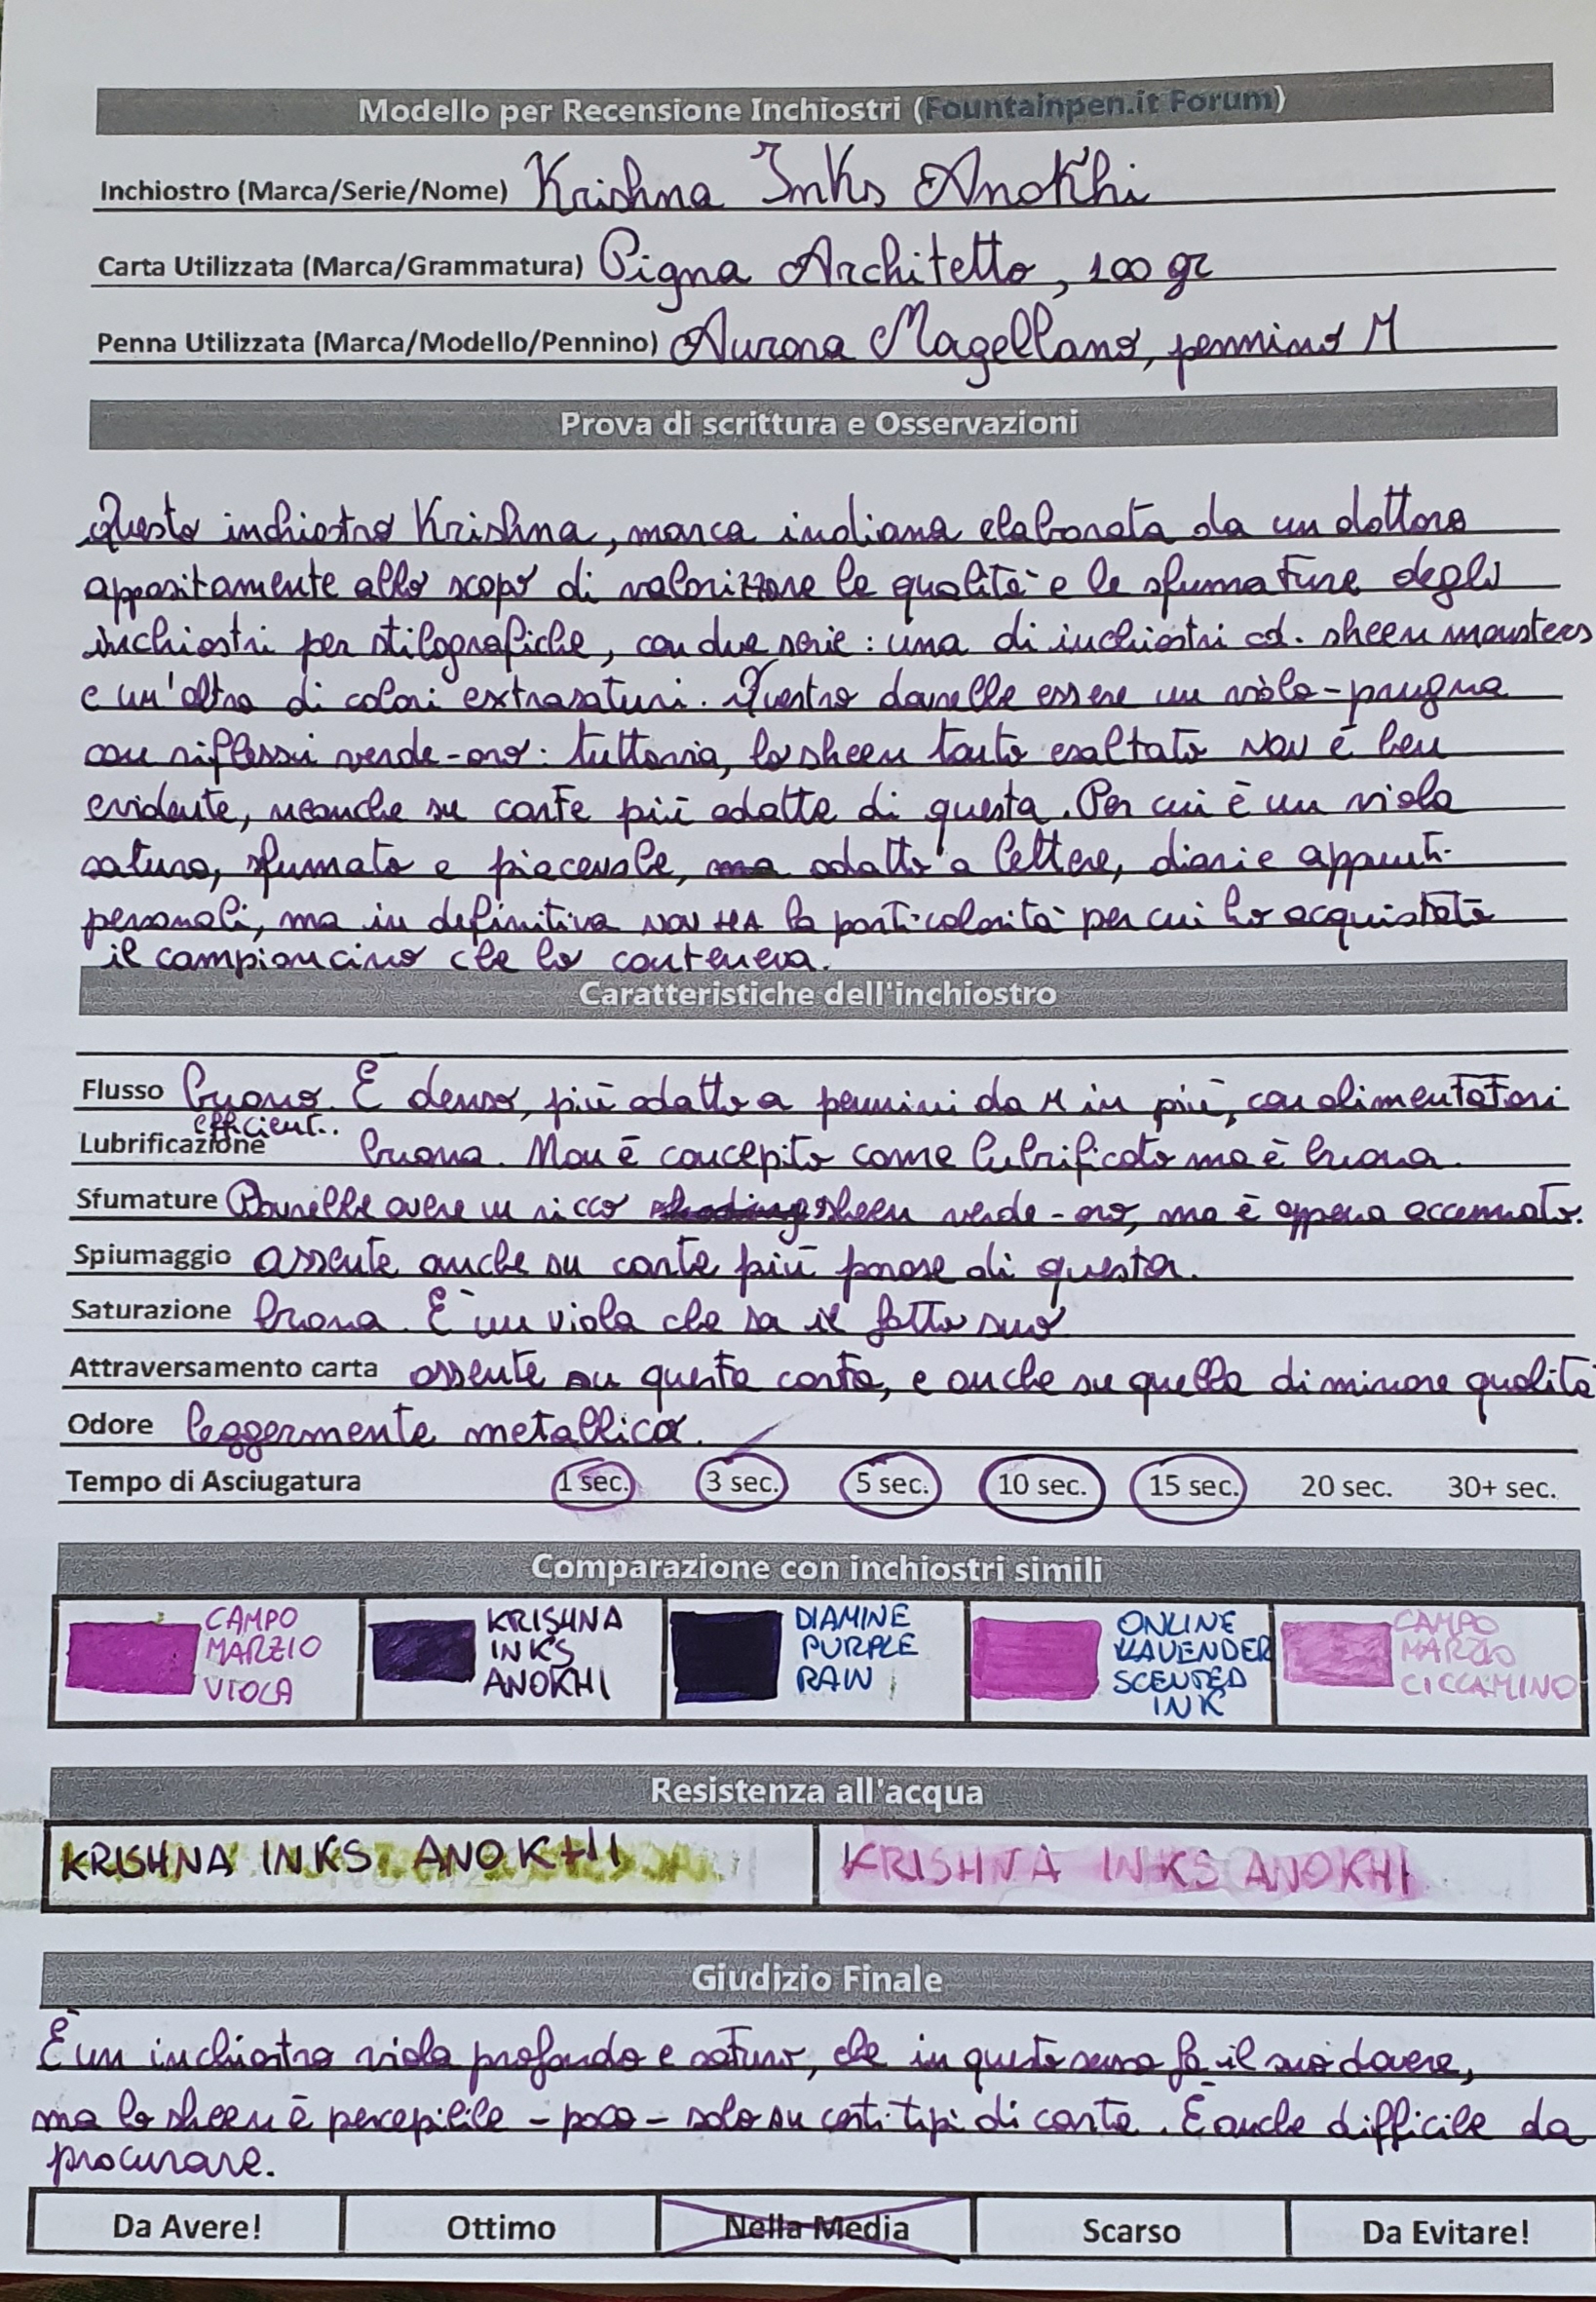 Modello per Recensione Inchiostri (Fountainpen.it Forum)
Inchiostro (Marca/Serie/Nome) Krishna Inks Anokhi
Carta Utilizzata (Marca/Grammatura) Pigna Architetto, 100 gr
Penna Utilizzata (Marca/Modello/Pennino) Aurora Magellano, pennino M
Prova di scrittura e Osservazioni
Questo inchiostro Krishna, marca indiana elaborata da un dottore
appositamente allo scopo di valorizzare le qualità e le sfumature degli
inchiostri per stilografiche, con due serie: una di inchiostri cd. sheen monsters
e un'altra di colori extrasaturi. Questro dovrebbe essere un viola-prugna
con riflessi verde-oro: tuttavia, lo sheen tanto esaltato NON è ben
evidente, neanche su carte più adatte di questa. Per cui è un viola
saturo, sfumato e piacevole, ma adatto a lettere, diari e appunti
personali, ma in definitiva NON HA la particolarità per cui ho acquistato
il campioncino che lo conteneva.
Caratteristiche dell'inchiostro
Flusso buono. È denso, più adatto a pennini da M in più, con alimentatori
efficienti..
Lubrificazione buona. Non è concepito come lubrificato ma è buona.
Sfumature Dovrebbe avere un ricco shading sheen verde-oro, ma è appena accennato.
Spiumaggio assente anche su carte più porose di questa.
Saturazione buona. È un viola che sa il fatto suo
Attraversamento carta assente su questa carta, e anche su quella di minore qualità
Odore leggermente metallico.
Tempo di Asciugatura 1 sec. 3 sec. 5 sec. 10 sec. 15 sec. 20 sec. 30+ sec.
Comparazione con inchiostri simili
CAMPO MARZIO VIOLA
KRISHNA INKS ANOKHI
DIAMINE PURPLE RAIN
ONLINE LAVENDER SCENTED INK
CAMPO MARZIO CICCAMINO
Resistenza all'acqua
KRISHNA INKS ANOKHI KRISHNA INKS ANOKHI
Giudizio Finale
È un inchiostro viola profondo e saturo, che in questo senso fa il suo dovere,
ma lo sheen è percepibile - poco - solo su certi tipi di carta. È anche difficile da
procurare.
Da Avere! Ottimo Nella Media Scarso Da Evitare!